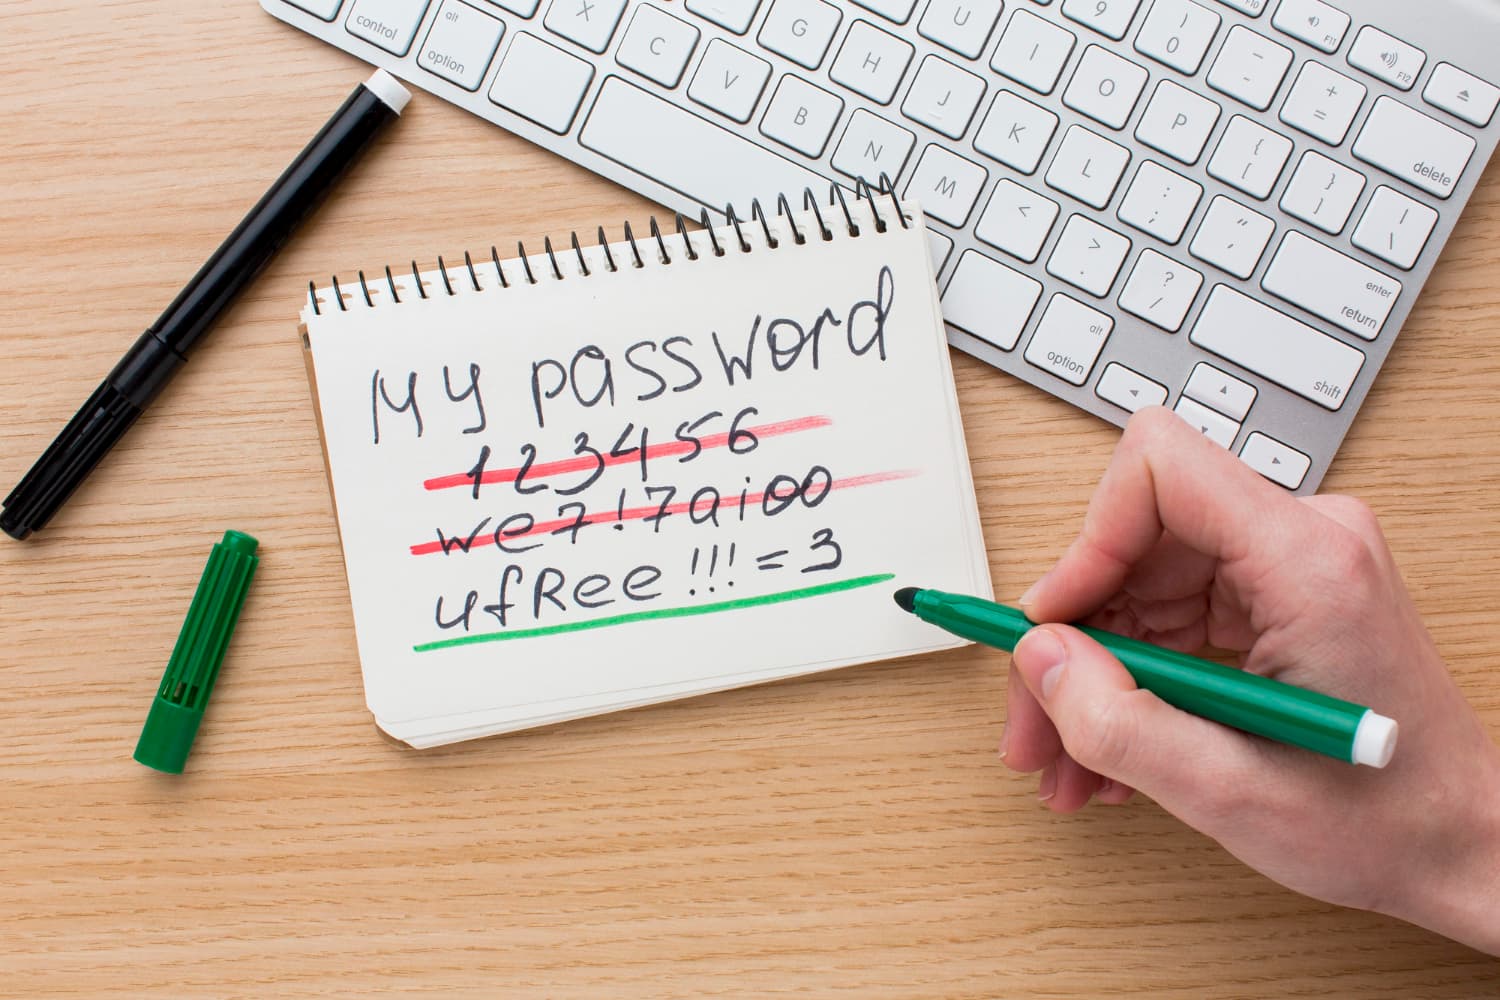 alt
control
option
X
C
V
G
B
H
N
U
J
M
I
K
<
9
O
L
>
.
)
0
P
:
;
?
/
_
-
{
[
"
,
+
=
}
]
|
\
F10
F11
F12
delete
enter
return
shift
alt
option
My password
123456
we7!7aioo
ufRee!!!=3